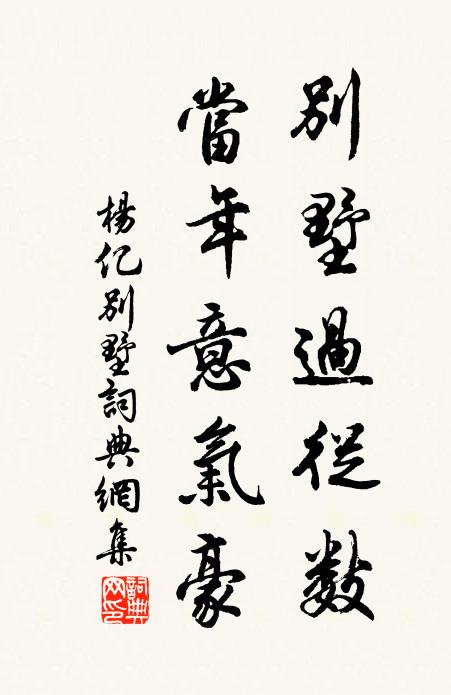 別墅過從數
當年意氣豪
楊億別墅詞典網集
詞典网印